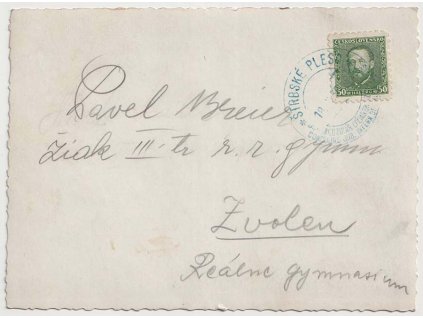 ČESKOSLOVENSKO
50 50
ŠTRBSKÉ PLESO
Pavel Breier
žiak III. tr. r. r. gymn.
Zvolen
Reálne gymnasium